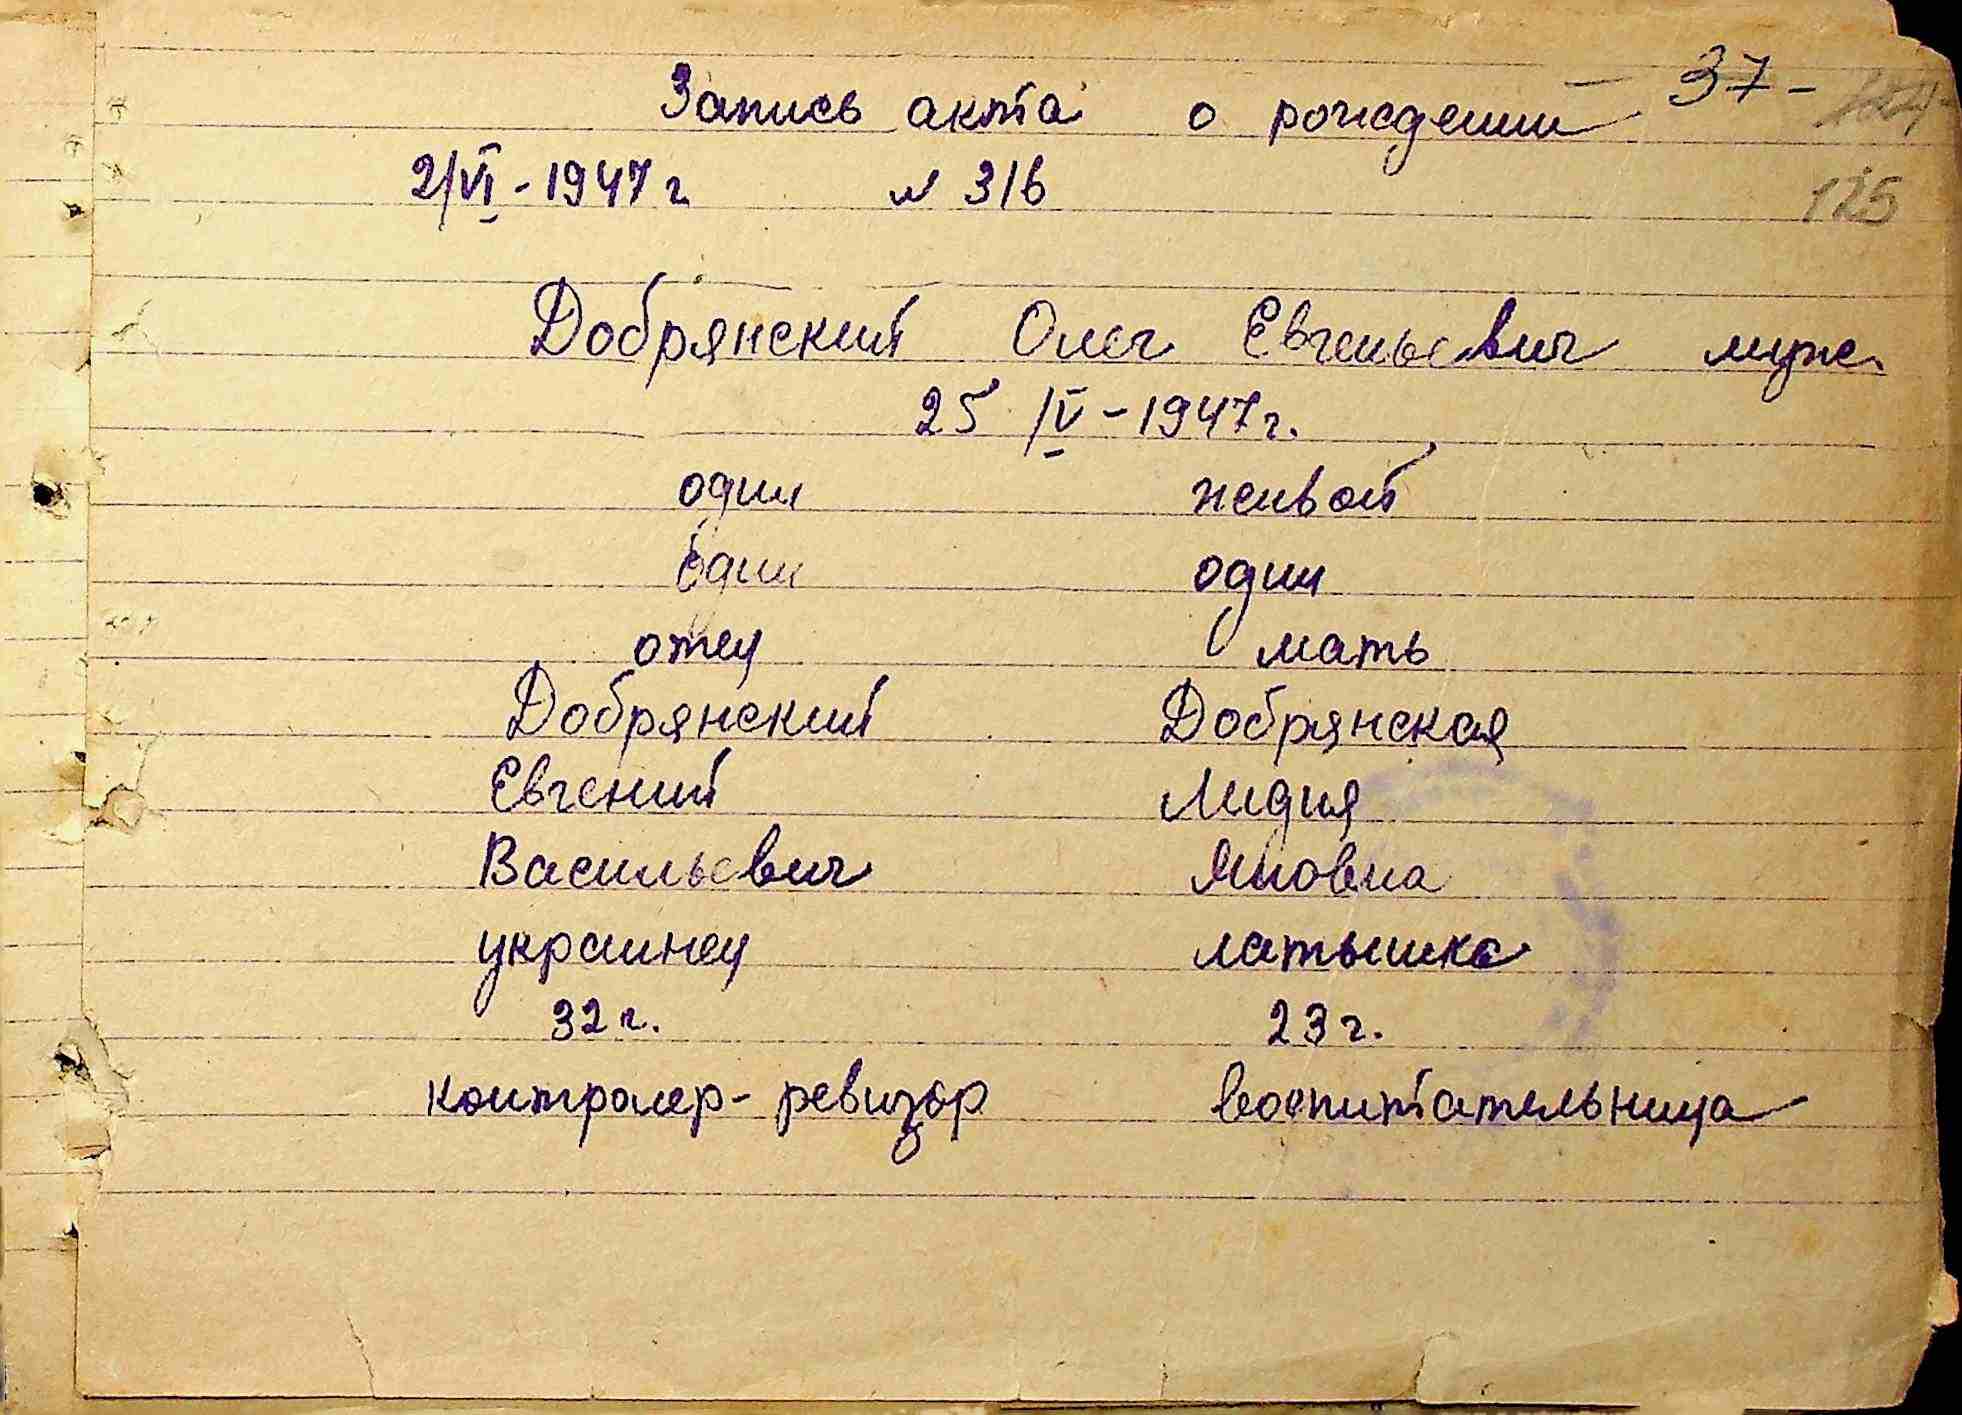 Запись акта о рождении - 37 -
2/VI - 1947 г. № 316
125
Добрянский Олег Евгеньевич муж.
25 /IV - 1947 г.
один живой
один один
отец мать
Добрянский Добрянская
Евгений Лидия
Васильевич Яновна
украинец латышка
32 г. 23 г.
контролер - ревизор воспитательница